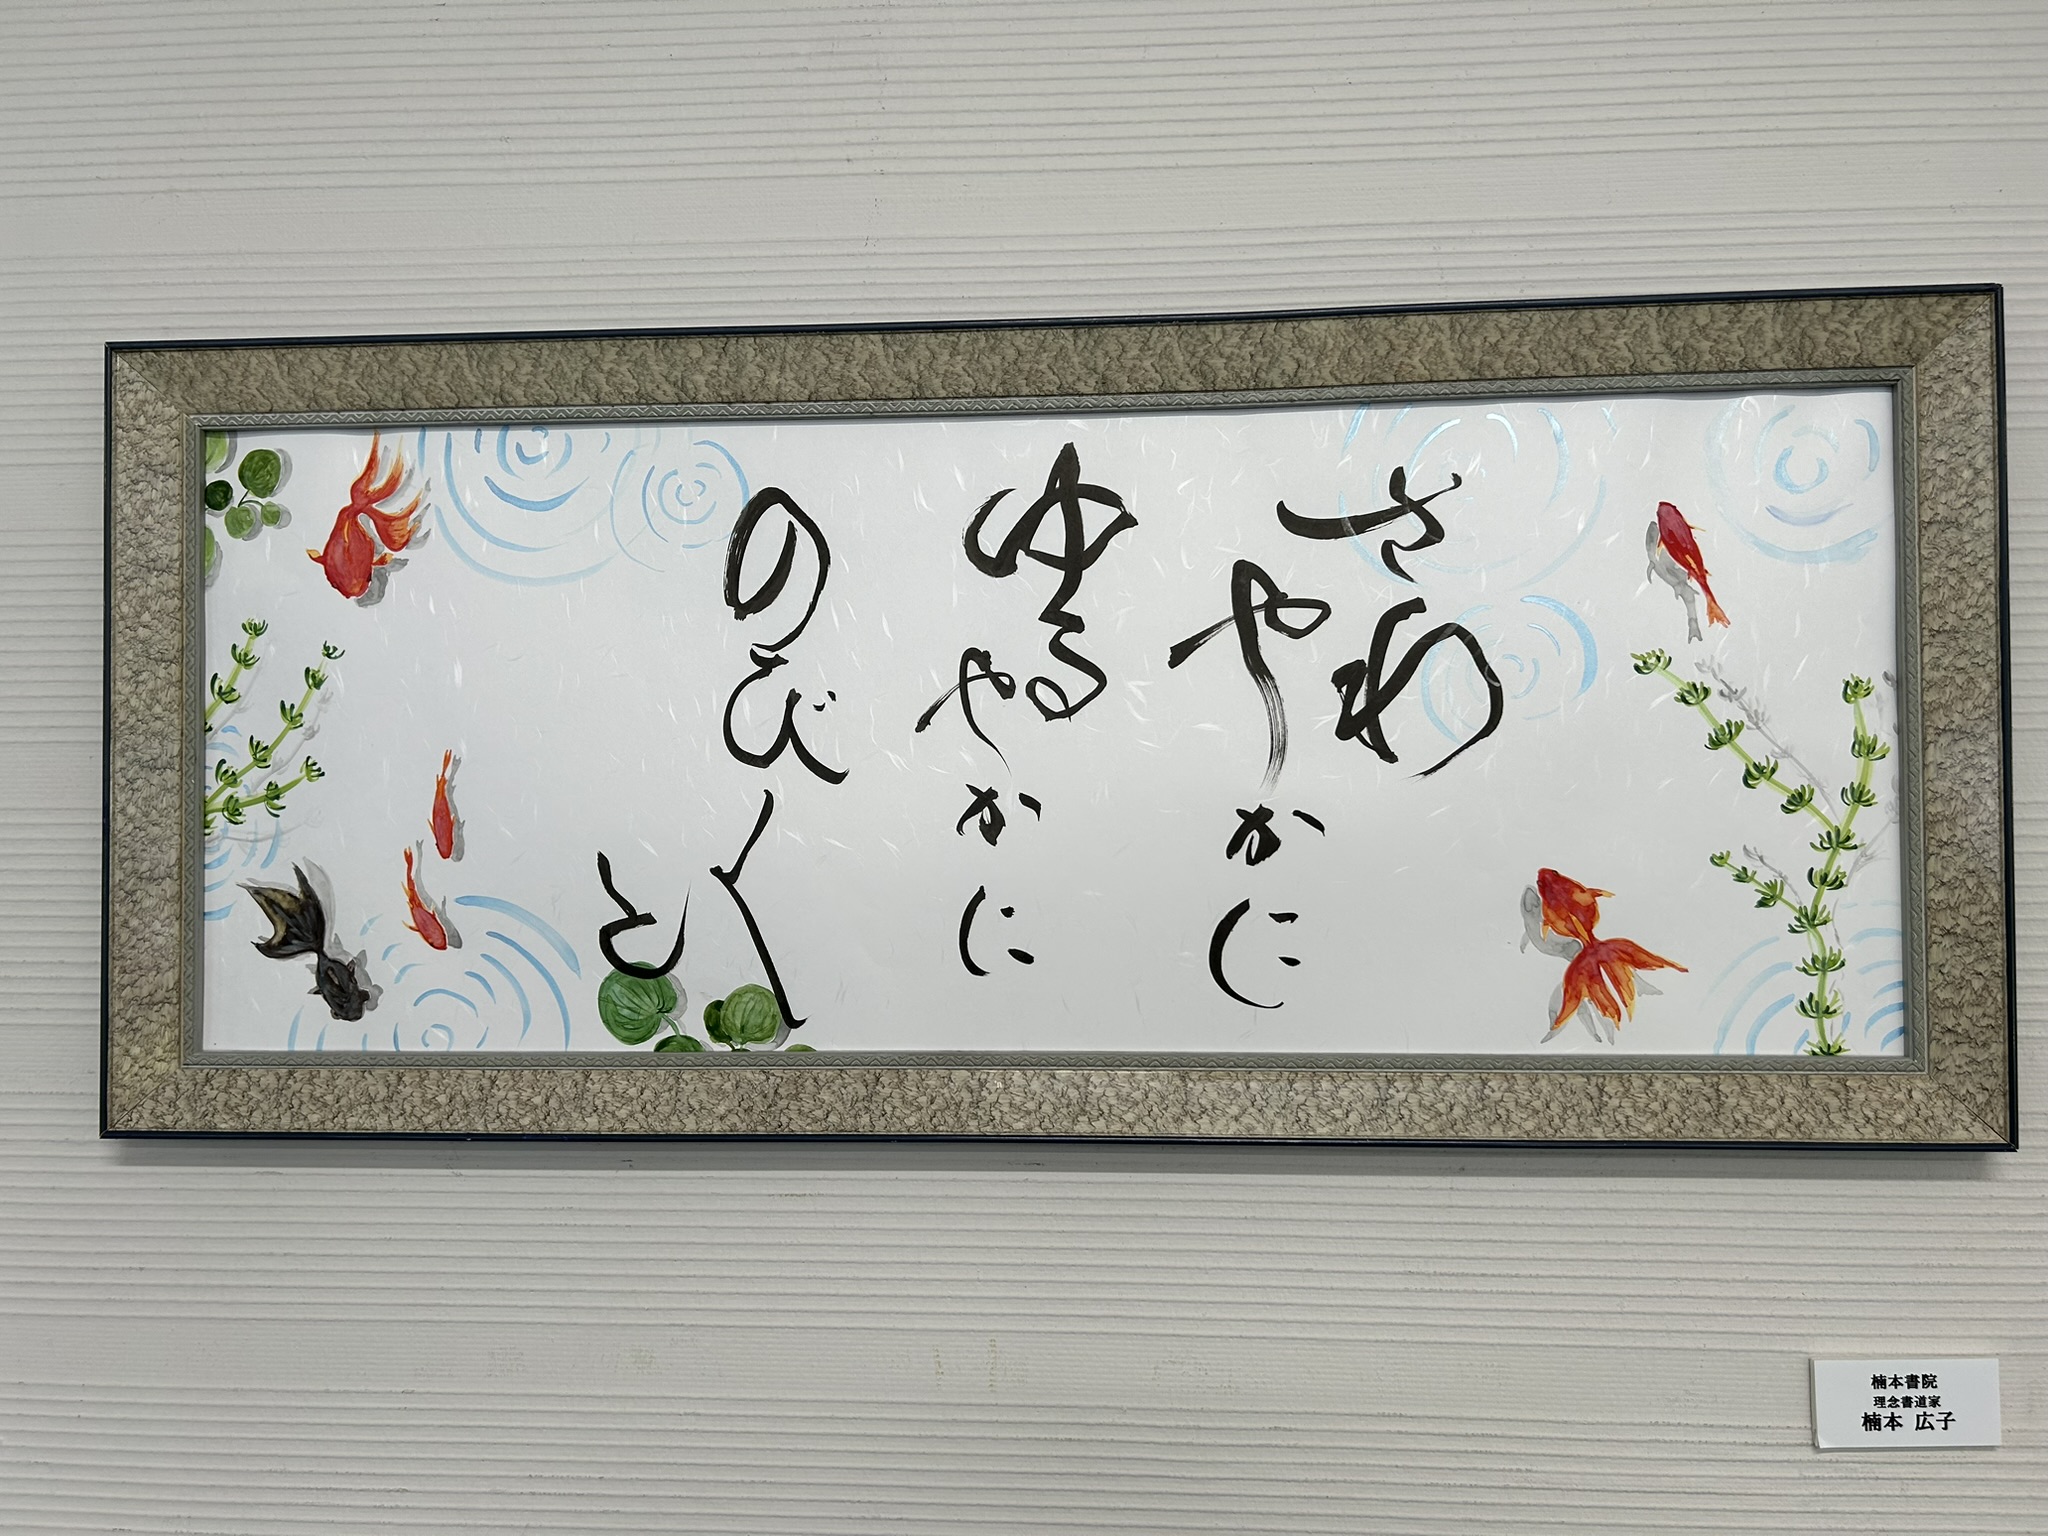 さわやかに
ゆるやかに
のび〳〵と
楠本書院
理念書道家
楠本 広子